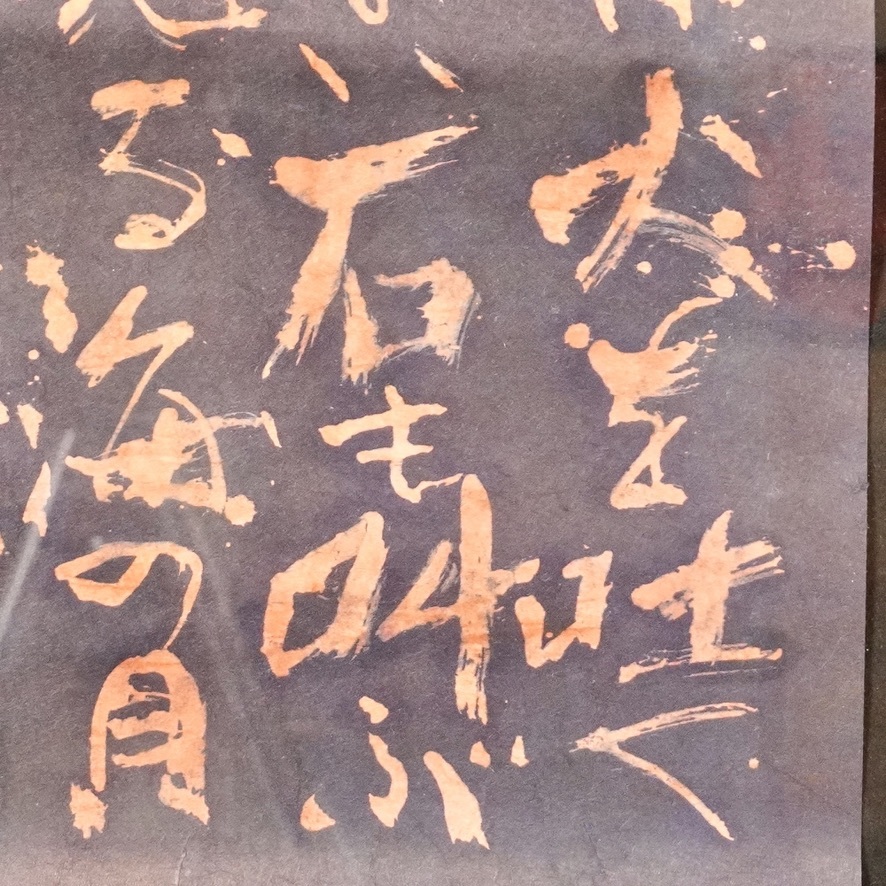 火を吐く
い石も叫ぶ
る海の貝